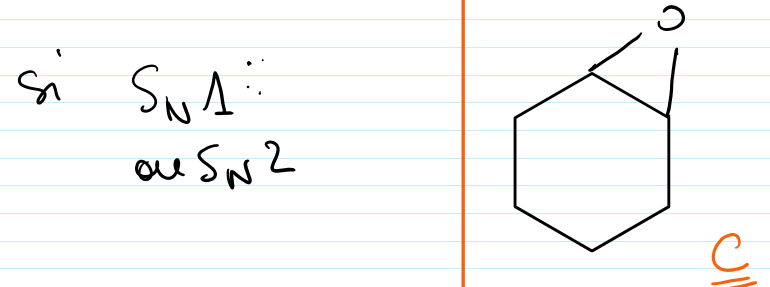 si SN1 :
ou SN2
O
C